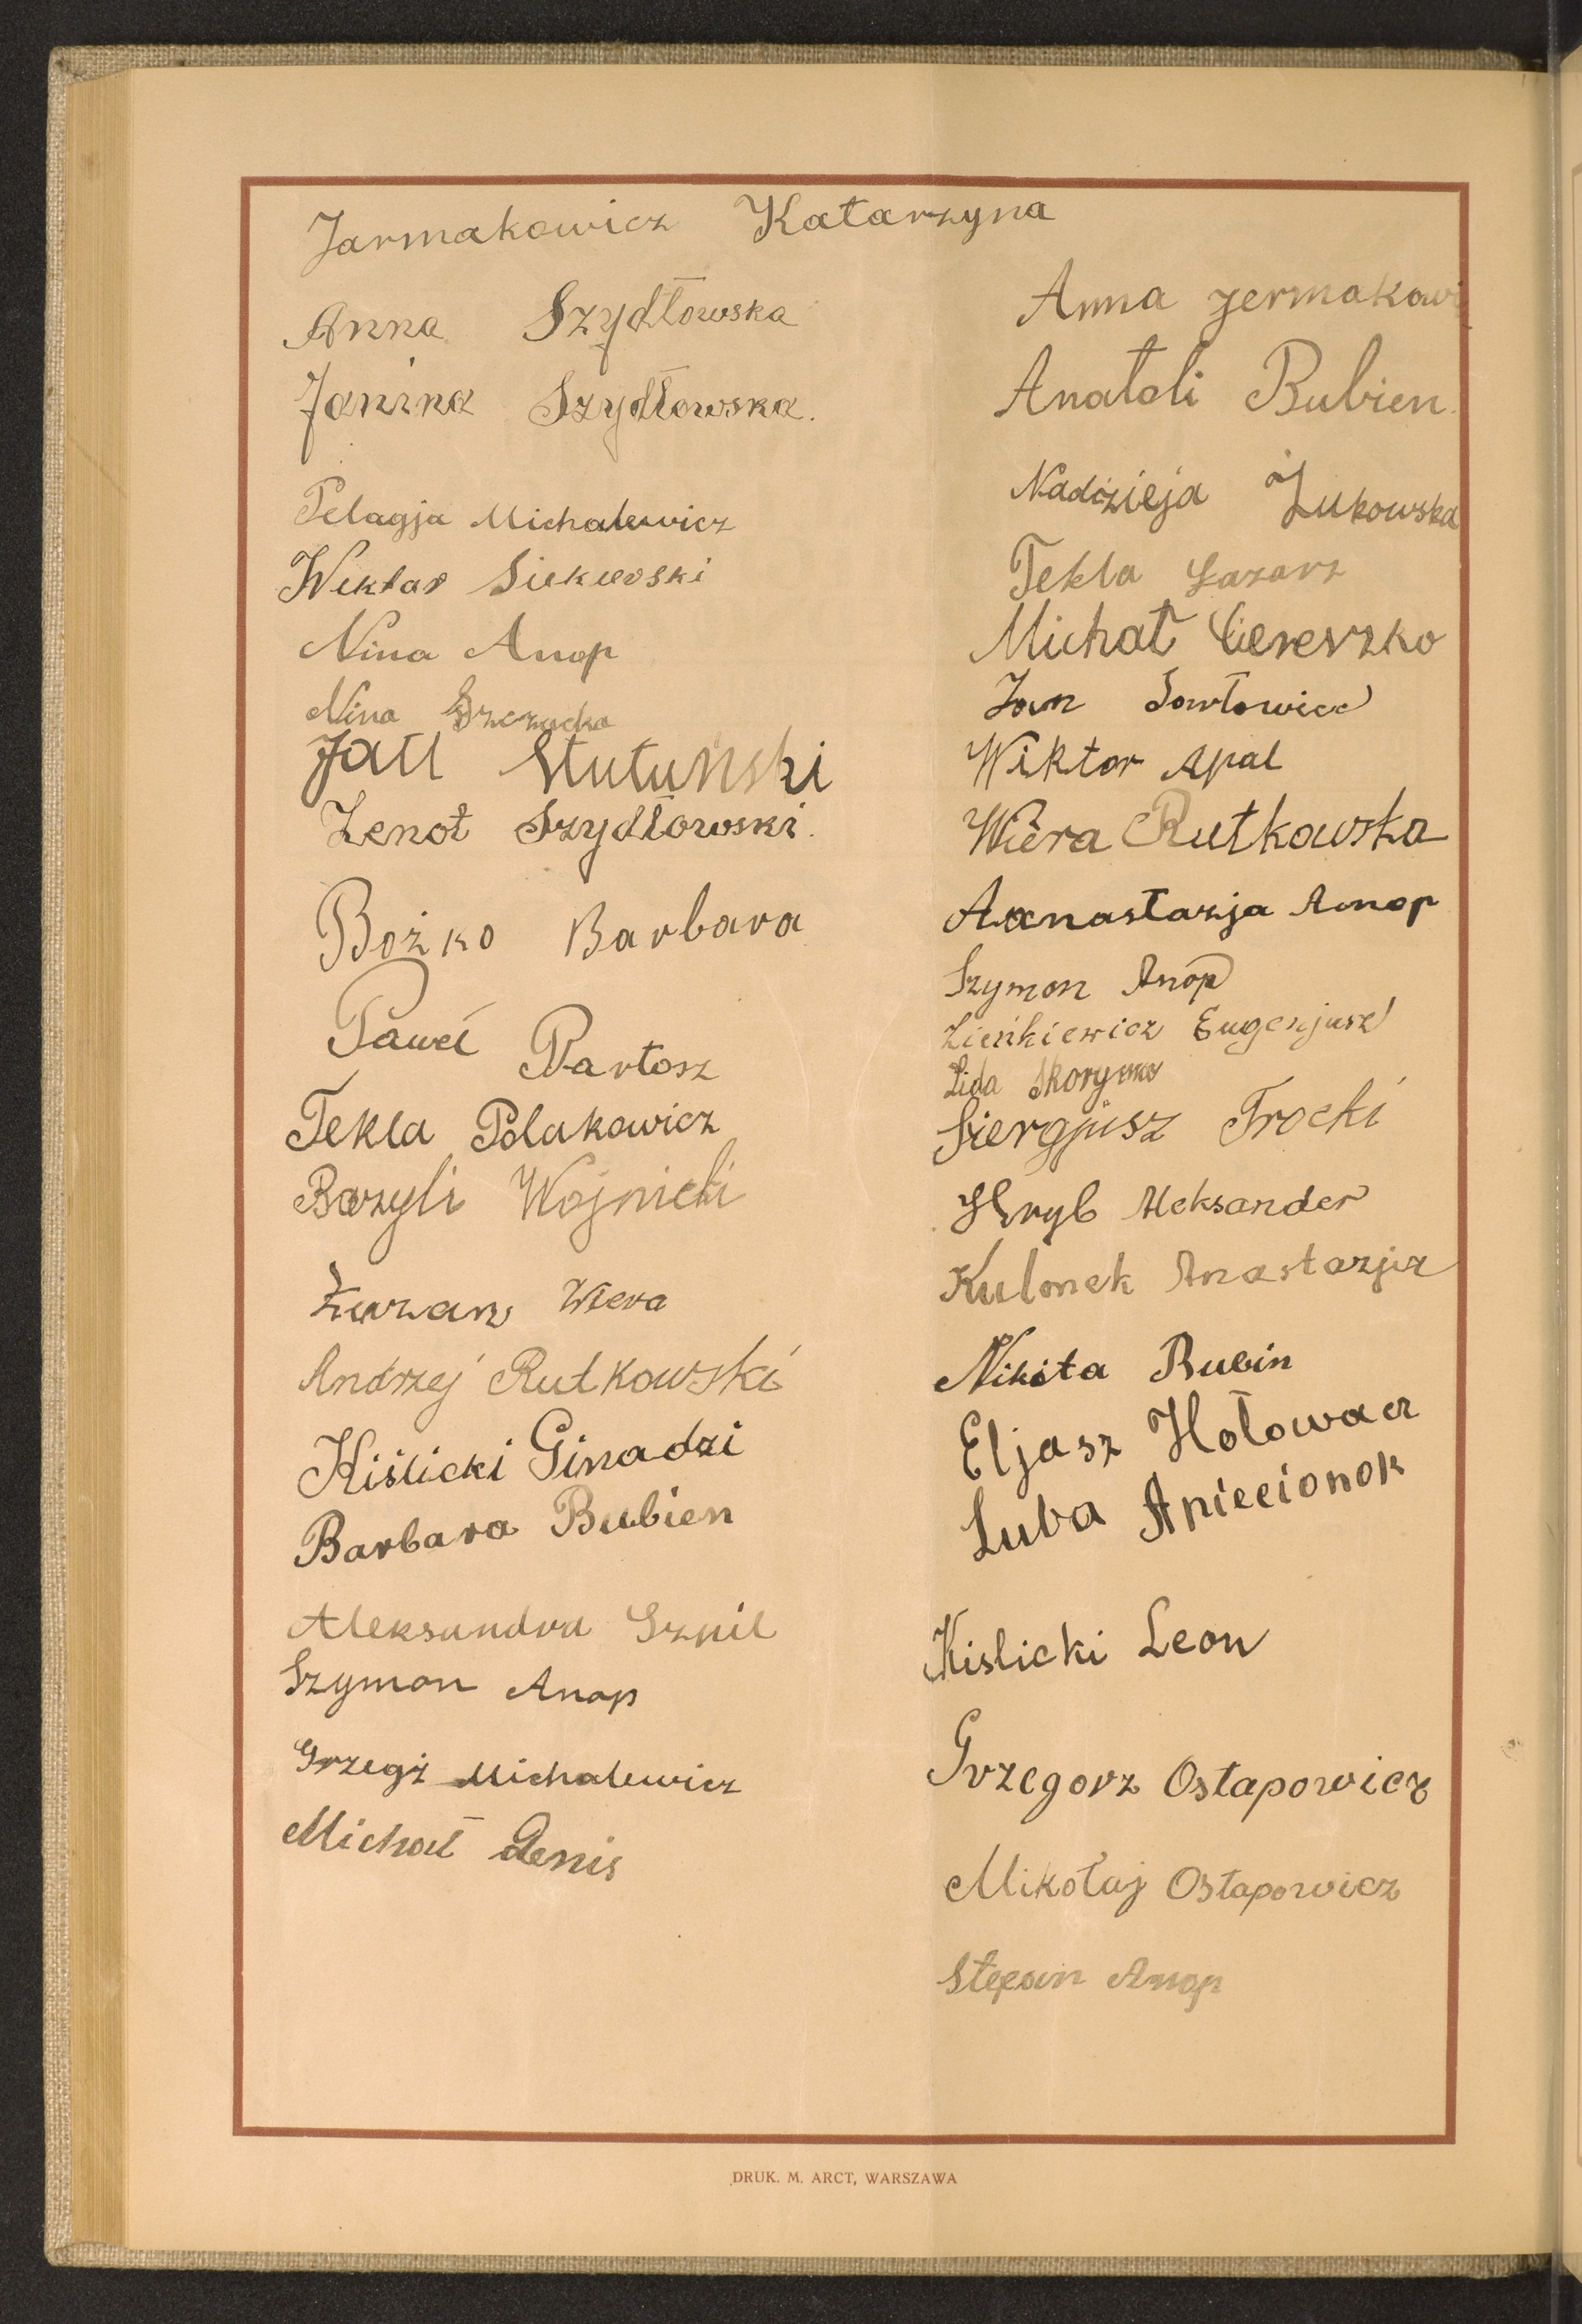 Jarmakowicz Katarzyna
Anna Szydłowska
Janina Szydłowska.
Pelagja Michalewicz
Wiktar Siekierski
Nina Anop
Nina
Jan Stutuński
Zenot Szydłowski.
Bożko Barbara
Paweł Bartosz
Tekla Polakowicz
Bazyli Wojnicki
Wiera
Andrzej Rutkowski
Kiślicki Ginadzi
Barbara Bubien
Aleksandra Szpil
Szymon Anop
Grzegż Michalewicz
Michał Denis
Anna Jermakowi
Anatoli Bubien.
Nadzieja Żukowska
Tekla Łazarz
Michał Ciereszko
Jan Sawłowicz
Wiktor Apal
Wiera Rutkowska
Aanastazja Anop
Szymon Anop
Zieńkiewicz Eugenjusz
Lida
Siergjusz Trocki
Hryb Aleksander
Kulonek Anastazja
Nikita Bubin
Eljasz Hołowacz
Luba Aniecionok
Kislicki Leon
Grzegorz Ostapowicz
Mikołaj Ostapowicz
Stepan Anop
DRUK. M. ARCT, WARSZAWA